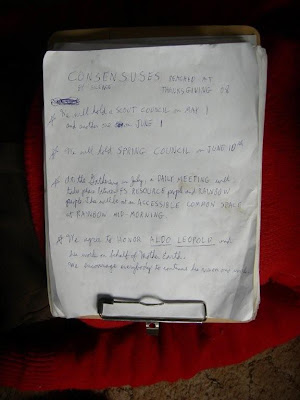 CONSENSUSES REACHED AT
THANKSGIVING 08
We will hold a SCOUT COUNCIL on MAY 1
and another one on JUNE 1
We will hold SPRING COUNCIL on JUNE 10th
At the Gathering in July, a DAILY MEETING will
take place between RESOURCE people and RAINBOW
people. This will be at an ACCESSIBLE COMMON SPACE
at RAINBOW MID-MORNING.
We agree to HONOR ALDO LEOPOLD and
his work on behalf of Mother Earth.
We encourage everybody to continue his vision and work.